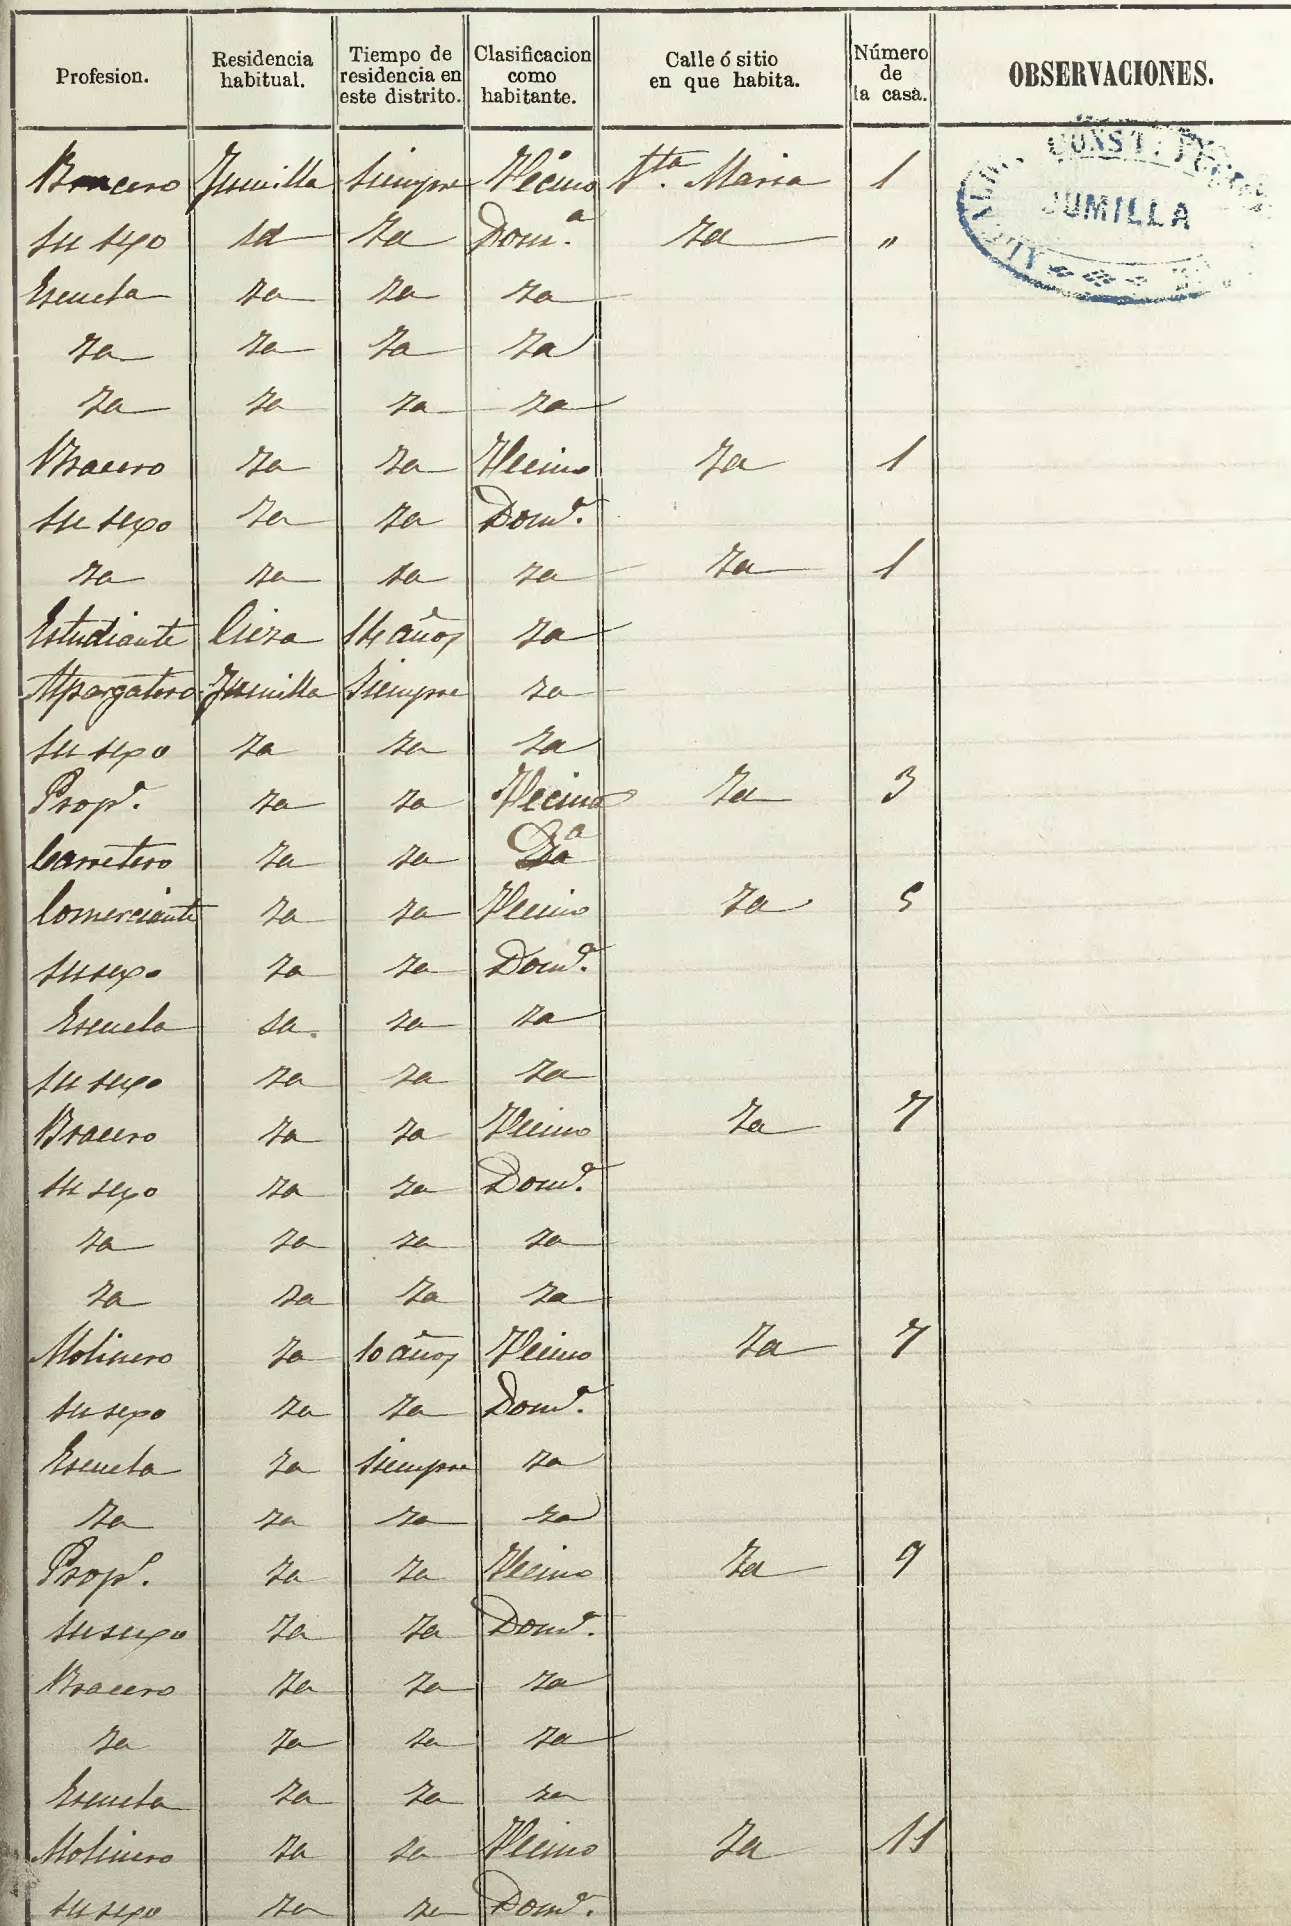 Profesion. Residencia habitual. Tiempo de residencia en este distrito. Clasificacion como habitante. Calle ó sitio en que habita. Número de la casa. OBSERVACIONES.
ALCALDIA CONSTITUCIONAL
JUMILLA
Bracero Jumilla Siempre Vecino Sta. Maria 1
su sexo id id Domª. id "
Escuela id id id
id id id id
id id id id
Bracero id id Vecino id 1
su sexo id id Domº.
id id id id id 1
Estudiante Cieza 14 años id
Alpargatero Jumilla Siempre id
su sexo id id id
Propº. id id Vecino id 3
Carretero id id Dª
Comerciante id id Vecino id 5
su sexo id id Domº.
Escuela id id id
su sexo id id id
Bracero id id Vecino id 7
su sexo id id Domº.
id id id id
id id id id
Molinero id 10 años Vecino id 7
su sexo id id Domº.
Escuela id Siempre id
id id id id
Propº. id id Vecino id 9
su sexo id id Domº.
Bracero id id id
id id id id
Escuela id id id
Molinero id id Vecino id 11
su sexo id id Domº.